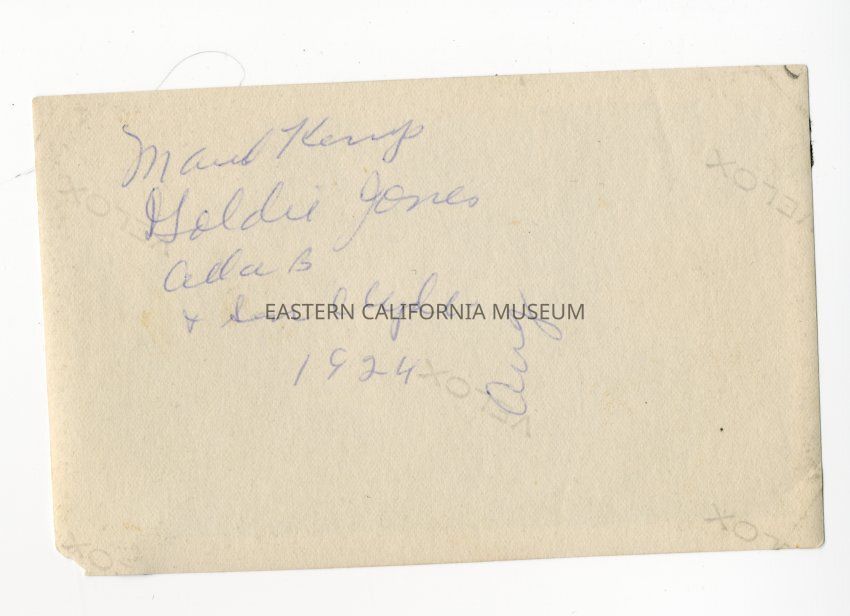 Maud Kemp
Goldie Jones
Ada B
+
EASTERN CALIFORNIA MUSEUM
1924
Aug
VELOX
VELOX
VELOX
VELOX
VELOX